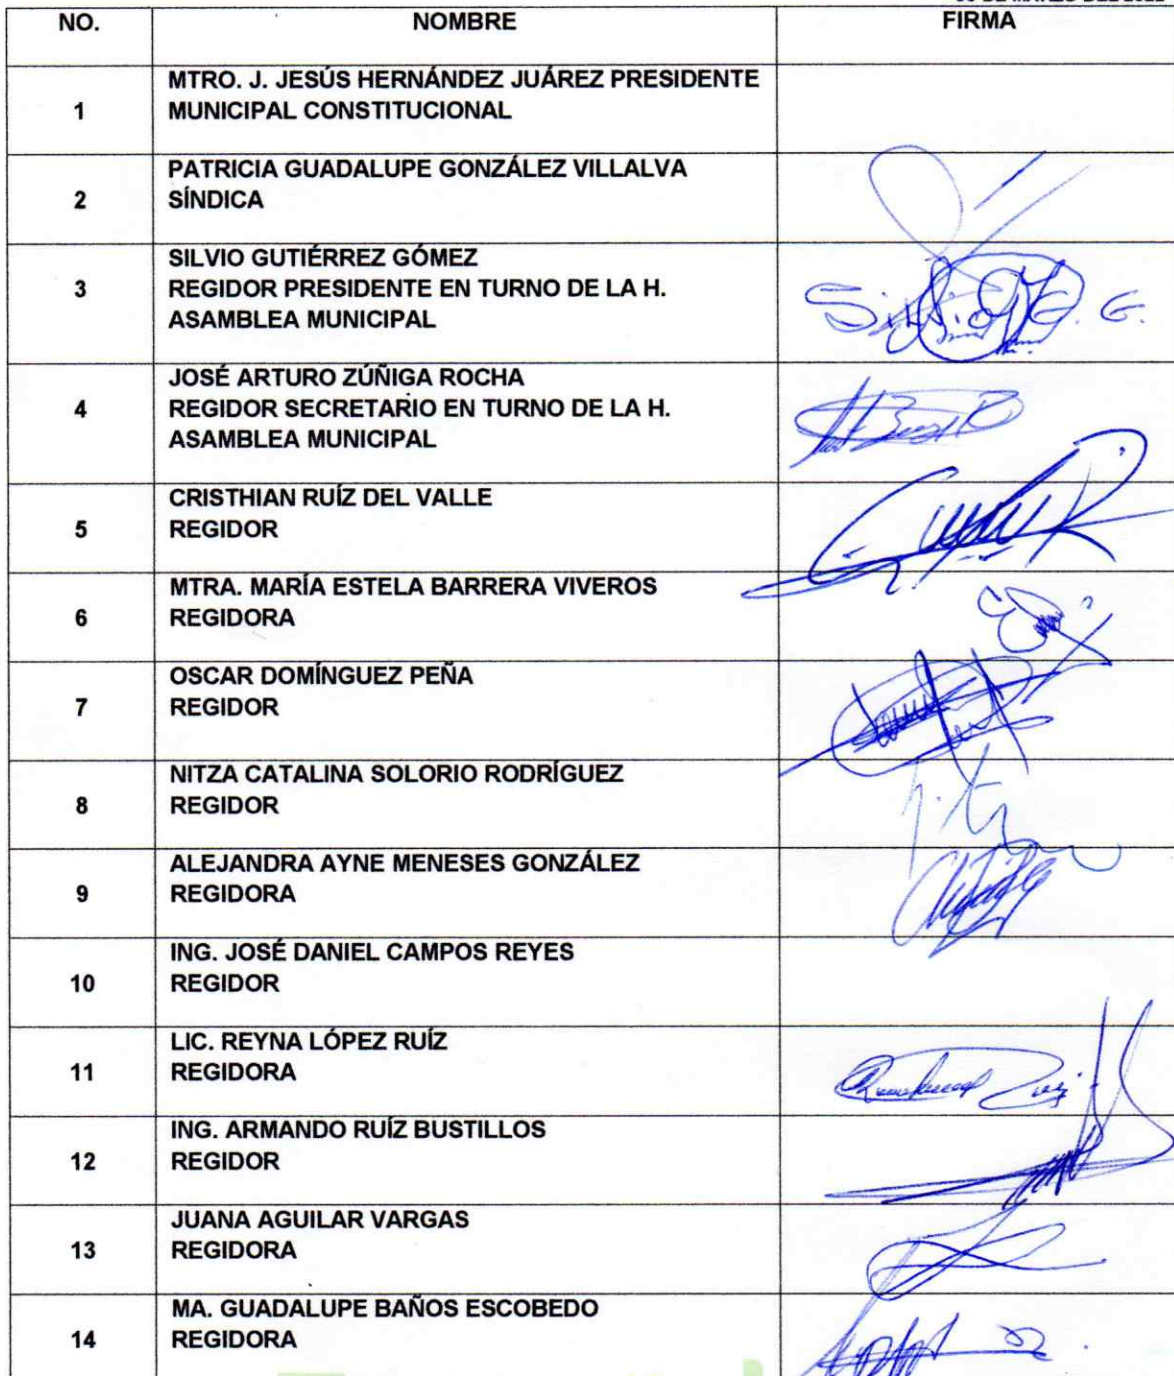 NO. NOMBRE FIRMA
1 MTRO. J. JESÚS HERNÁNDEZ JUÁREZ PRESIDENTE
MUNICIPAL CONSTITUCIONAL
2 PATRICIA GUADALUPE GONZÁLEZ VILLALVA
SÍNDICA
3 SILVIO GUTIÉRREZ GÓMEZ
REGIDOR PRESIDENTE EN TURNO DE LA H.
ASAMBLEA MUNICIPAL
4 JOSÉ ARTURO ZÚÑIGA ROCHA
REGIDOR SECRETARIO EN TURNO DE LA H.
ASAMBLEA MUNICIPAL
5 CRISTHIAN RUÍZ DEL VALLE
REGIDOR
6 MTRA. MARÍA ESTELA BARRERA VIVEROS
REGIDORA
7 OSCAR DOMÍNGUEZ PEÑA
REGIDOR
8 NITZA CATALINA SOLORIO RODRÍGUEZ
REGIDOR
9 ALEJANDRA AYNE MENESES GONZÁLEZ
REGIDORA
10 ING. JOSÉ DANIEL CAMPOS REYES
REGIDOR
11 LIC. REYNA LÓPEZ RUÍZ
REGIDORA
12 ING. ARMANDO RUÍZ BUSTILLOS
REGIDOR
13 JUANA AGUILAR VARGAS
REGIDORA
14 MA. GUADALUPE BAÑOS ESCOBEDO
REGIDORA